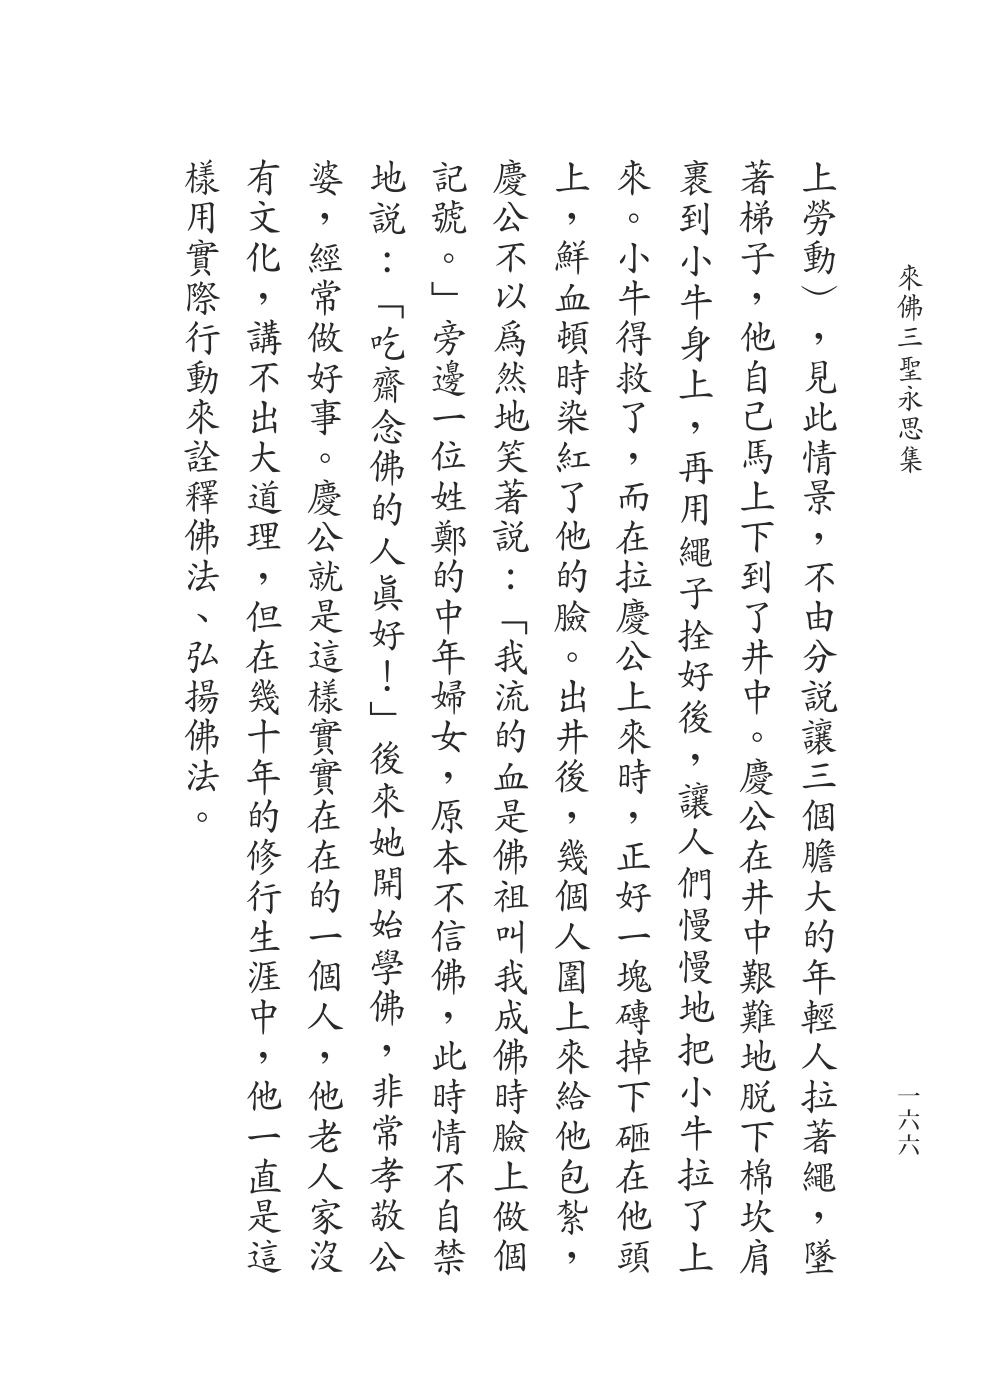 來佛三聖永思集
一六六
上勞動），見此情景，不由分説讓三個膽大的年輕人拉著繩，墜
著梯子，他自己馬上下到了井中。慶公在井中艱難地脱下棉坎肩
裹到小牛身上，再用繩子拴好後，讓人們慢慢地把小牛拉了上
來。小牛得救了，而在拉慶公上來時，正好一塊磚掉下砸在他頭
上，鮮血頓時染紅了他的臉。出井後，幾個人圍上來給他包紮，
慶公不以爲然地笑著説：「我流的血是佛祖叫我成佛時臉上做個
記號。」旁邊一位姓鄭的中年婦女，原本不信佛，此時情不自禁
地説：「吃齋念佛的人眞好！」後來她開始學佛，非常孝敬公
婆，經常做好事。慶公就是這樣實實在在的一個人，他老人家沒
有文化，講不出大道理，但在幾十年的修行生涯中，他一直是這
樣用實際行動來詮釋佛法、弘揚佛法。